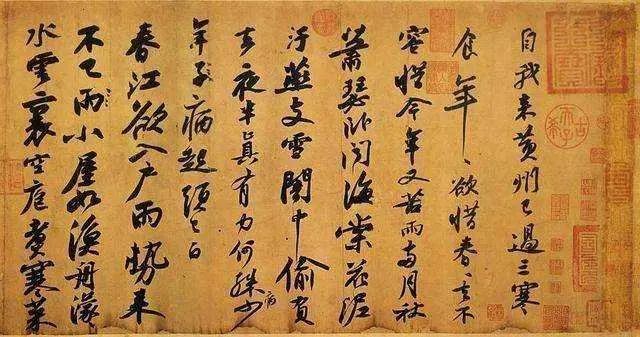 自我來黃州已過三寒
食年〻欲惜春春去不
容惜今年又苦雨兩月秋
蕭瑟臥聞海棠花泥
汙燕支雪闇中偷負
去夜半真有力何殊病少
年子病起頭已白
春江欲入戶雨勢來
不已雨小屋如漁舟濛〻
水雲裏空庖煮寒菜
古希天子